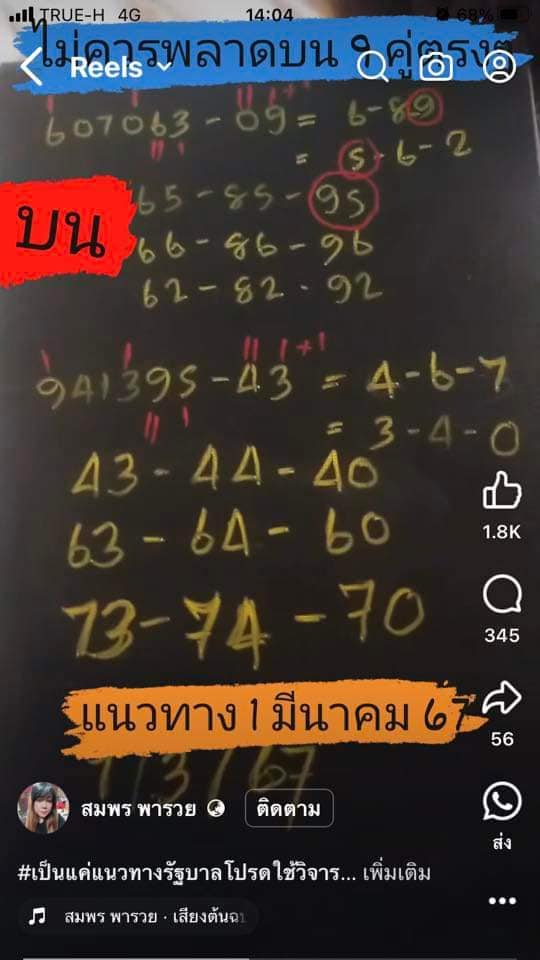 TRUE-H 4G 14:04 68%
ไม่ควรพลาดบน 9 คู่ตรงๆ
Reels
607063-09 = 6-89
= 5-6-2
บน
65-85-95
66-86-96
62-82-92
941395-43 = 4-6-7
= 3-4-0
43-44-40
63-64-60
73-74-70
1.8K
345
แนวทาง 1 มีนาคม 67
56
1/3/67
สมพร พารวย ติดตาม
ส่ง
#เป็นแค่แนวทางรัฐบาลโปรดใช้วิจาร... เพิ่มเติม
สมพร พารวย · เสียงต้นฉบ